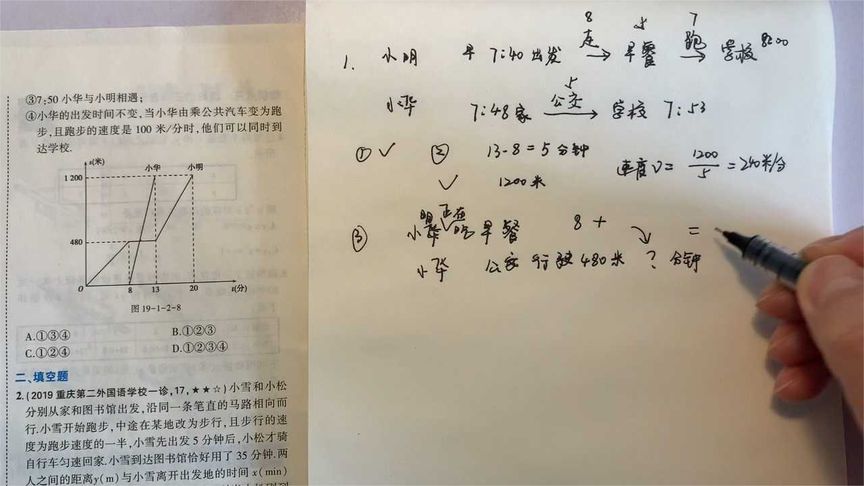 ③7:50 小华与小明相遇;
④小华的出发时间不变,当小华由乘公共汽车变为跑
步,且跑步的速度是 100 米/分时,他们可以同时到
达学校.
s(米)
小华 小明
1 200
480
O 8 13 20 t(分)
图 19-1-2-8
A.①③④ B.①②③
C.①②④ D.①②③④
二、填空题
2.(2019 重庆第二外国语学校一诊,17,★★☆)小雪和小松
分别从家和图书馆出发,沿同一条笔直的马路相向而
行.小雪开始跑步,中途在某地改为步行,且步行的速
度为跑步速度的一半,小雪先出发 5 分钟后,小松才骑
自行车匀速回家.小雪到达图书馆恰好用了 35 分钟.两
人之间的距离y(m)与小雪离开出发地的时间 x(min)
8 5 7
1. 小明 早 7:40 出发 走→ 早餐 跑→ 学校 8:00
5
小华 7:48 家 公交→ 学校 7:53
① ✓ ② 13-8=5 分钟 速度 V= 1200/5 =240米/分
✓ 1200 米
③ 小明 正在吃 早餐 8 + =
小华 公交 行驶 480 米 ? 分钟